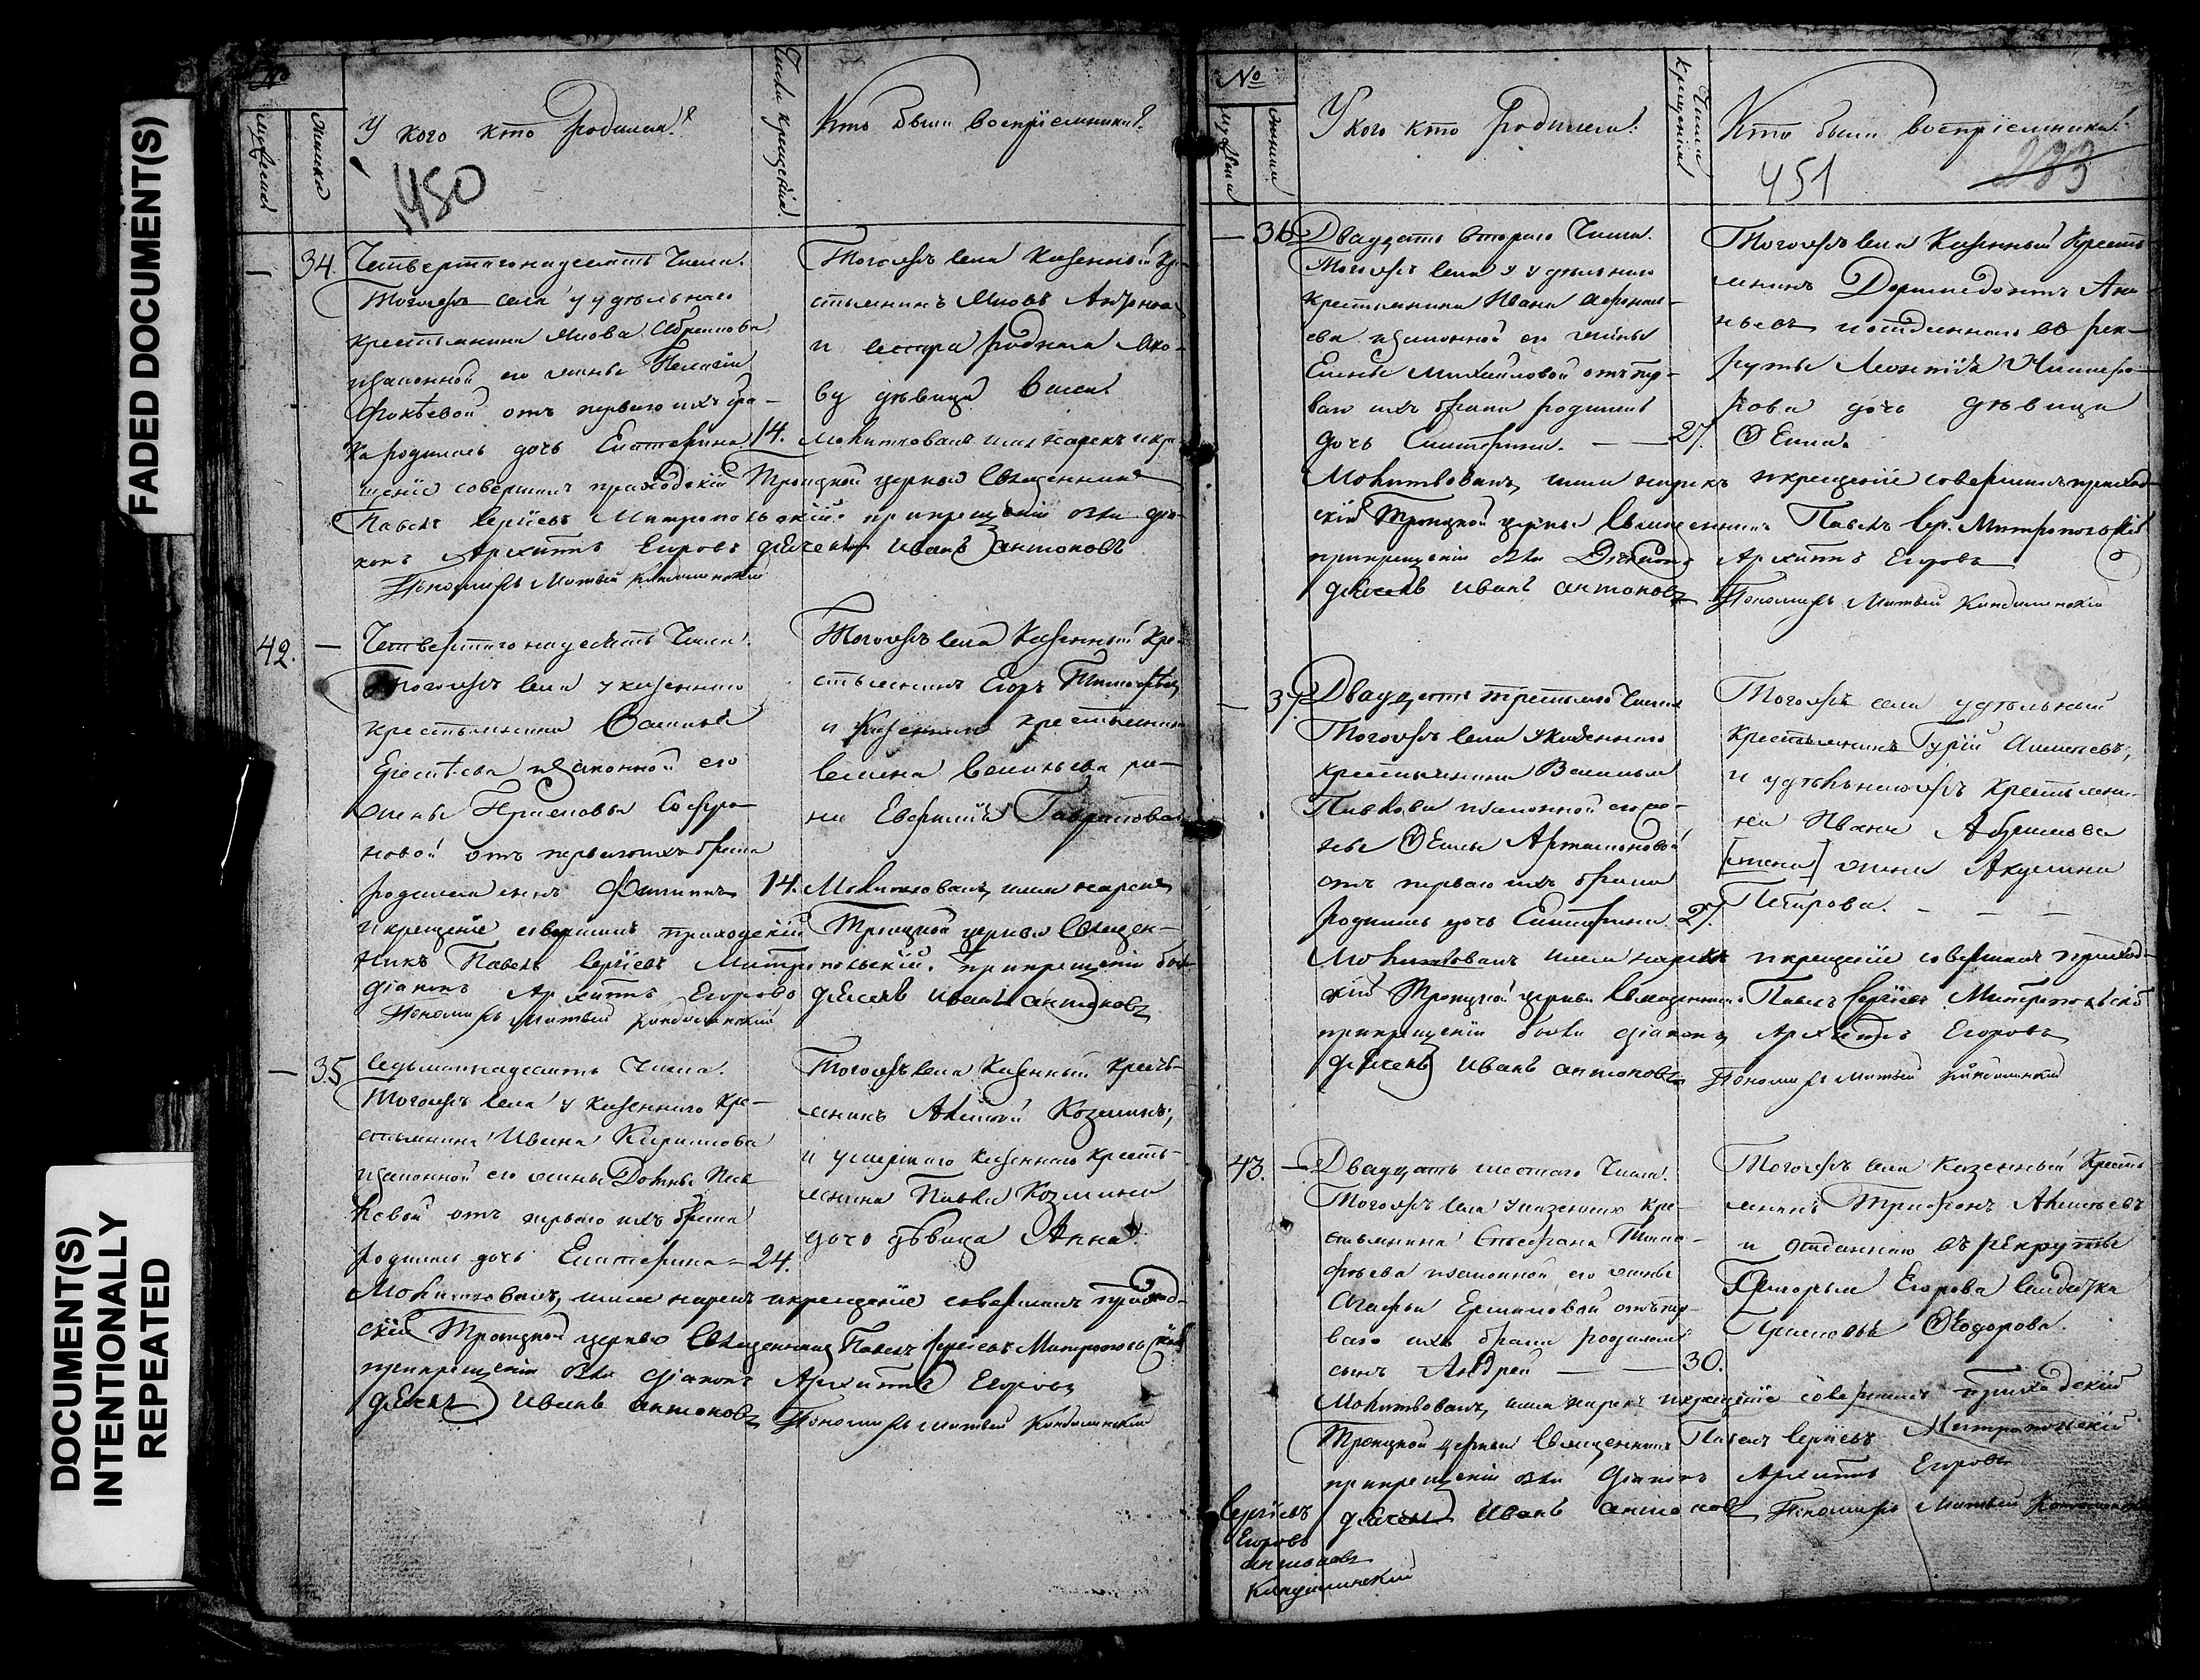 FADED DOCUMENT(S)
DOCUMENT(S)
INTENTIONALLY
REPEATED
№
мужеска
женска
У кого кто родился?
450
Числа крещенія.
Кто были воспріемники?
34. Четвертагонадесять Числа.
Тогожъ села у удѣльнаго
крестьянина Іиова Абрамова
и законной его жены Пелагіи
Фокѣевой отъ перваго ихъ бра-
ка родилась дочь Екатерина 14.
Тогожъ села Казенный Кре-
стьянинъ Іиовъ Антонов
и сестра родная Іяко-
ву дѣвица Васса
Молитвовалъ имя нарекъ и кре-
щеніе совершилъ приходскій Троицкой церкви Священникъ
Павелъ Сергіевъ Митропольскій. при крещеніи были діа-
конъ Архиппъ Егоровъ дьячекъ Иванъ Антоновъ
Пономарь Матвей Кандалинскій
42. — Четвертагонадесять Числа.
Тогожъ села у казеннаго
крестьянина Василья
Елисѣева и законной его
жены Прасковьи Софро-
новой отъ перваго ихъ брака
родился сынъ Филиппъ 14.
Тогожъ села Казенный Кре-
стьянинъ Егоръ Тимофѣевъ
и Казеннаго крестьянина
Семена Савельева же-
на Евфимія Гаврилова
Молитвовалъ, имя нарекъ
и крещеніе совершилъ приходскій Троицкой церкви Священ-
никъ Павелъ Сергіевъ Митропольскій. при крещеніи были
діаконъ Архиппъ Егоровъ дьячекъ Иванъ Антоновъ
Пономарь Матвей Кандалинскій
— 35 Седьмагонадесять Числа.
Тогожъ села у казеннаго Кре-
стьянина Ивана Кирилова
и законной его жены Домны Пав-
ловой отъ перваго ихъ брака
родилась дочь Екатерина — 24.
Тогожъ села Казенный Кресть-
янинъ Алексѣй Козминъ,
и умершаго казеннаго кресть-
янина Павла Козмина
дочь дѣвица Анна.
Молитвовалъ, имя нарекъ и крещеніе совершилъ приход-
скій Троицкой церкви Священникъ Павелъ Сергіевъ Митропольскій
при крещеніи были діаконъ Архиппъ Егоровъ
дьячекъ Иванъ Антоновъ Пономарь Матвей Кандалинскій
№
мужеска
женска
У кого кто родился?
Числа крещенія
Кто были воспріемники?
451 283
— 36 Двадцать втораго Числа.
Тогожъ села у удѣльнаго
крестьянина Ивана Афанась-
ева и законной его жены
Елены Михайловой отъ пер-
ваго ихъ брака родилась
дочь Екатерина. — — 27.
Тогожъ села Казенный Кресть-
янинъ Доримедонтъ Ана-
ньевъ и отданнаго въ рек-
руты Леонтія Никифо-
рова дочь дѣвица
Ѳекла.
Молитвовалъ, имя нарекъ и крещеніе совершилъ приход-
скій Троицкой церкви Священникъ Павелъ Сер. Митропольскій
при крещеніи были Діаконъ Архиппъ Егоровъ
дьячекъ Иванъ Антоновъ Пономарь Матвей Кандалинскій
— 37 Двадцать третьяго Числа
Тогожъ села у казеннаго
крестьянина Василья
Павлова и законной его же-
ны Ѳеклы Артамоновой
отъ перваго ихъ брака
родилась дочь Екатерина. 27.
Тогожъ села удѣльный
крестьянинъ Гурій Алексѣевъ,
и удѣльнагожъ крестьяни-
на Ивана Абрамова
[жена] жена Акулина
Петрова. — — —
Молитвовалъ имя нарекъ и крещеніе совершилъ приход-
скій Троицкой церкви Священникъ Павелъ Сергіевъ Митропольскій
при крещеніи были діаконъ Архиппъ Егоровъ
дьячекъ Иванъ Антоновъ Пономарь Матвей Кандалинскій
43. — Двадцать шестаго Числа.
Тогожъ села у казеннаго Кре-
стьянина Стефана Тимо-
фѣева и законной его жены
Агафьи Ермиловой отъ пер-
ваго ихъ брака родился
сынъ Андрей — — 30.
Тогожъ села Казенный Кресть-
янинъ Трифонъ Алексѣевъ
и отданнаго въ рекруты
Григорья Егорова солдатка
Прасковья Ѳеодорова.
Молитвовалъ, имя нарекъ и крещеніе совершилъ приходскій
Троицкой церкви Священникъ Павелъ Сергіевъ Митропольскій
при крещеніи были Діаконъ Архиппъ Егоровъ
дьячекъ Иванъ Антоновъ Пономарь Матвей
Сергіевъ
Егоровъ
Антоновъ
Кандалинскій